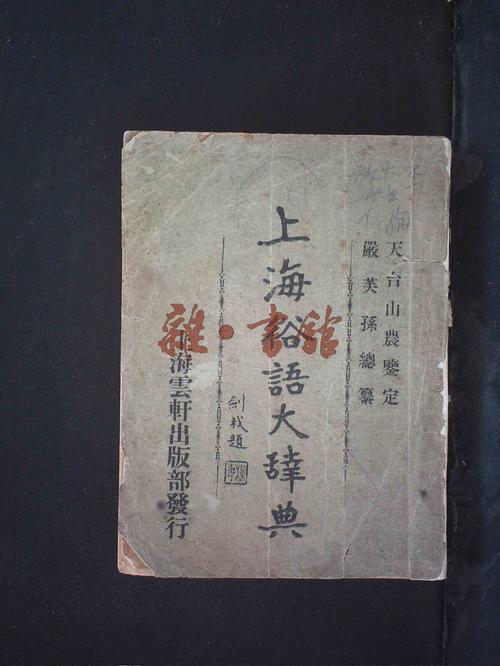 天台山農鑒定
嚴芙孫總纂
上海俗語大辭典
劍秋題
上海雲軒出版部發行
雜·書館